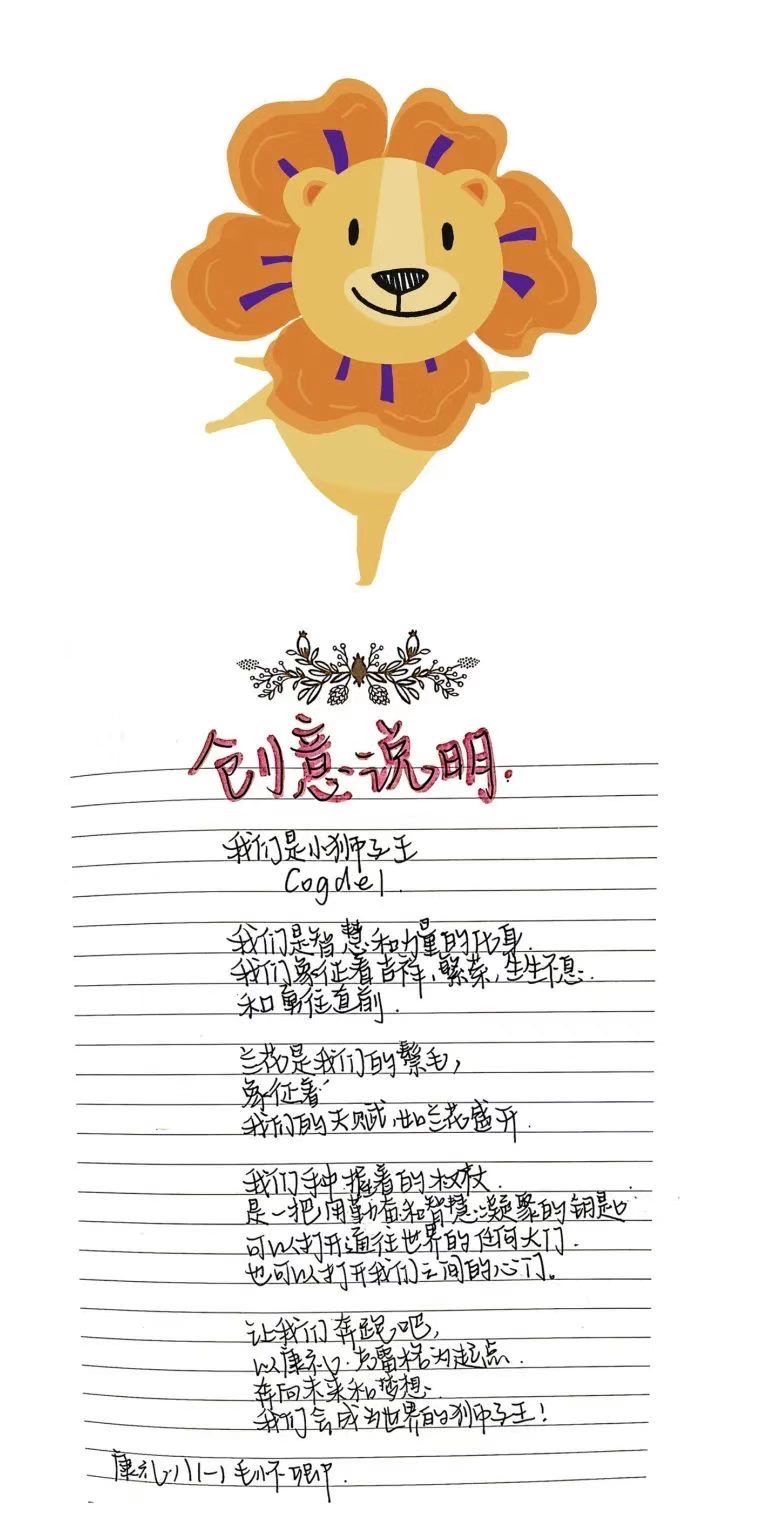 创意说明.
我们是小狮子王
Cogdel.
我们是智慧和力量的化身.
我们象征着吉祥,繁荣,生生不息.
和勇往直前.
兰花是我们的鬃毛,
象征着
我们的天赋,如兰花盛开.
我们手中握着的权杖.
是一把用勤奋和智慧凝聚的钥匙
可以打开通往世界的任何大门.
也可以打开我们之间的心门。
让我们奔跑吧,
以康礼·克雷格为起点.
奔向未来和梦想.
我们会成为世界的狮子王!
康礼八(一)毛怀